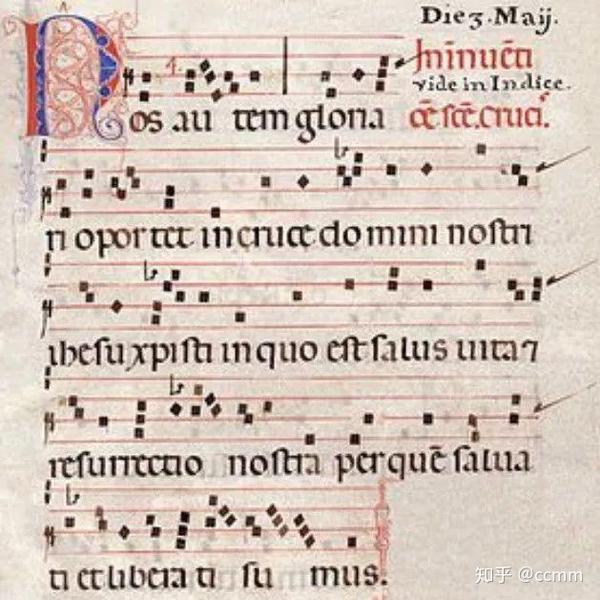 Die 3. Maij.
Jn ĩnuẽti
vide in Indice.
õe scẽ. Cruci.
Nos au tem gloria
ri opor tet in cruce do mini nostri
ihesu xpisti in quo est salus uita ⁊
resurrectio nostra per quẽ salua
ti et libera ti su mus.
知乎 @ccmm